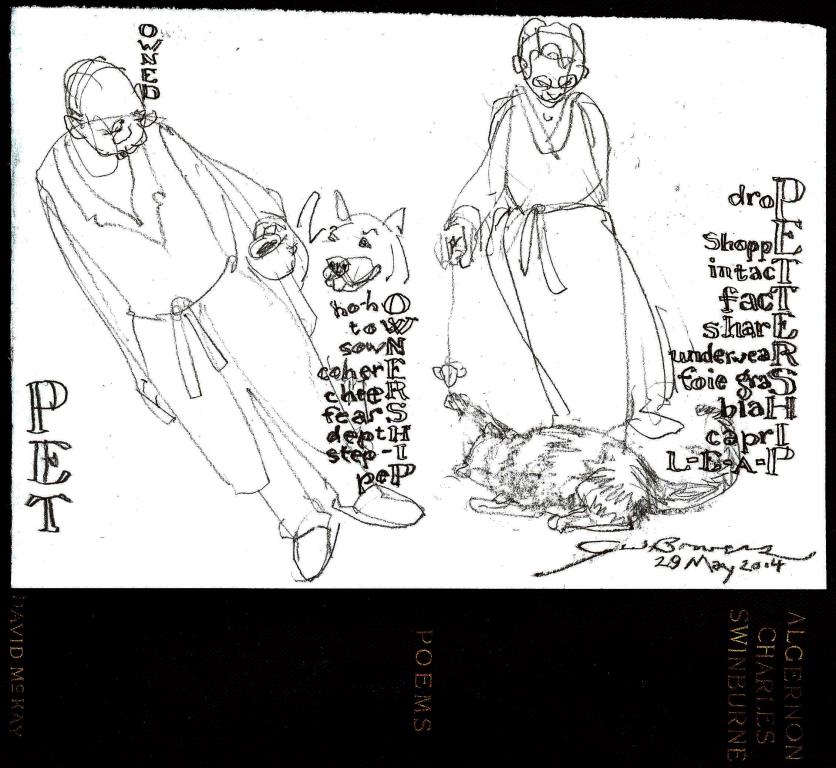 OWNED
PET
ho-hO
toW
sowN
coherE
cheeR
fearS
deptH
step-I
peP
droP
ShoppE
intacT
facT
sharE
underweaR
foie graS
blaH
caprI
L-E-A-P
29 May 2014
DAVID McKAY
POEMS
ALGERNON
CHARLES
SWINBURNE